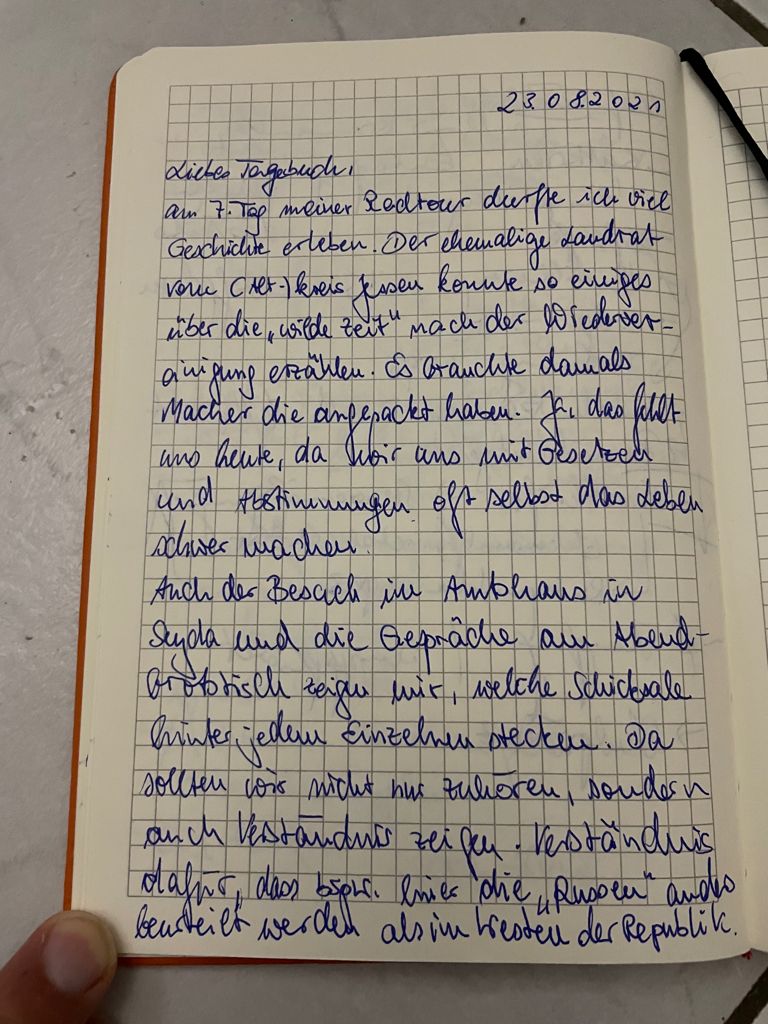 23.08.2021
Liebes Tagebuch,
am 7. Tag meiner Radtour durfte ich viel
Geschichte erleben. Der ehemalige Landrat
vom (Alt-)kreis Jessen konnte so einiges
über die „wilde Zeit" nach der Wiederver-
einigung erzählen. Es brauchte damals
Macher die angepackt haben. Ja, das fehlt
uns heute, da wir uns mit Gesetzen
und Abstimmungen oft selbst das Leben
schwer machen.
Auch der Besuch im Amtshaus in
Seyda und die Gespräche am Abend-
brotstisch zeigen mir, welche Schicksale
hinter jedem Einzelnen stecken. Da
sollten wir nicht nur zuhören, sondern
auch Verständnis zeigen. Verständnis
dafür, dass bspw. hier die „Russen" anders
beurteilt werden als im Westen der Republik.